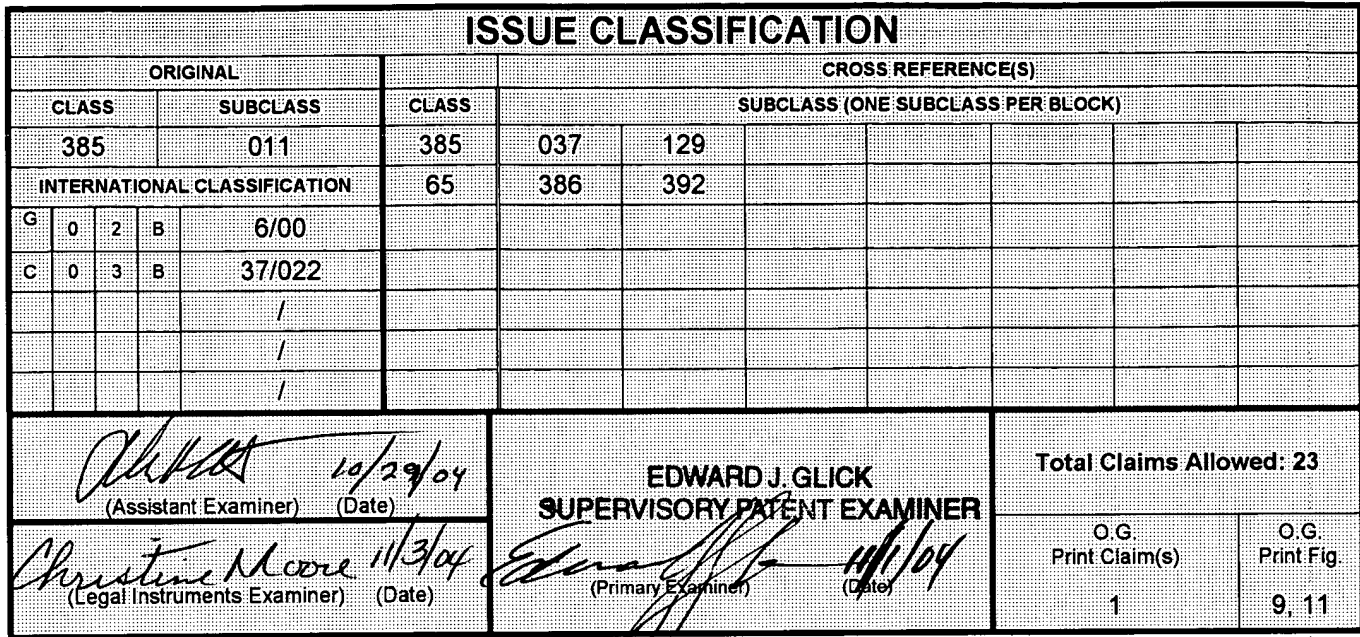 ISSUE CLASSIFICATION
ORIGINAL CROSS REFERENCE(S)
CLASS SUBCLASS CLASS SUBCLASS (ONE SUBCLASS PER BLOCK)
385 011 385 037 129
INTERNATIONAL CLASSIFICATION 65 386 392
G 0 2 B 6/00
C 0 3 B 37/022
/
/
/
10/29/04
(Assistant Examiner) (Date)
Christine Moore 11/3/04
(Legal Instruments Examiner) (Date)
EDWARD J. GLICK
SUPERVISORY PATENT EXAMINER
11/1/04
(Primary Examiner) (Date)
Total Claims Allowed: 23
O.G. Print Claim(s) O.G. Print Fig.
1 9, 11